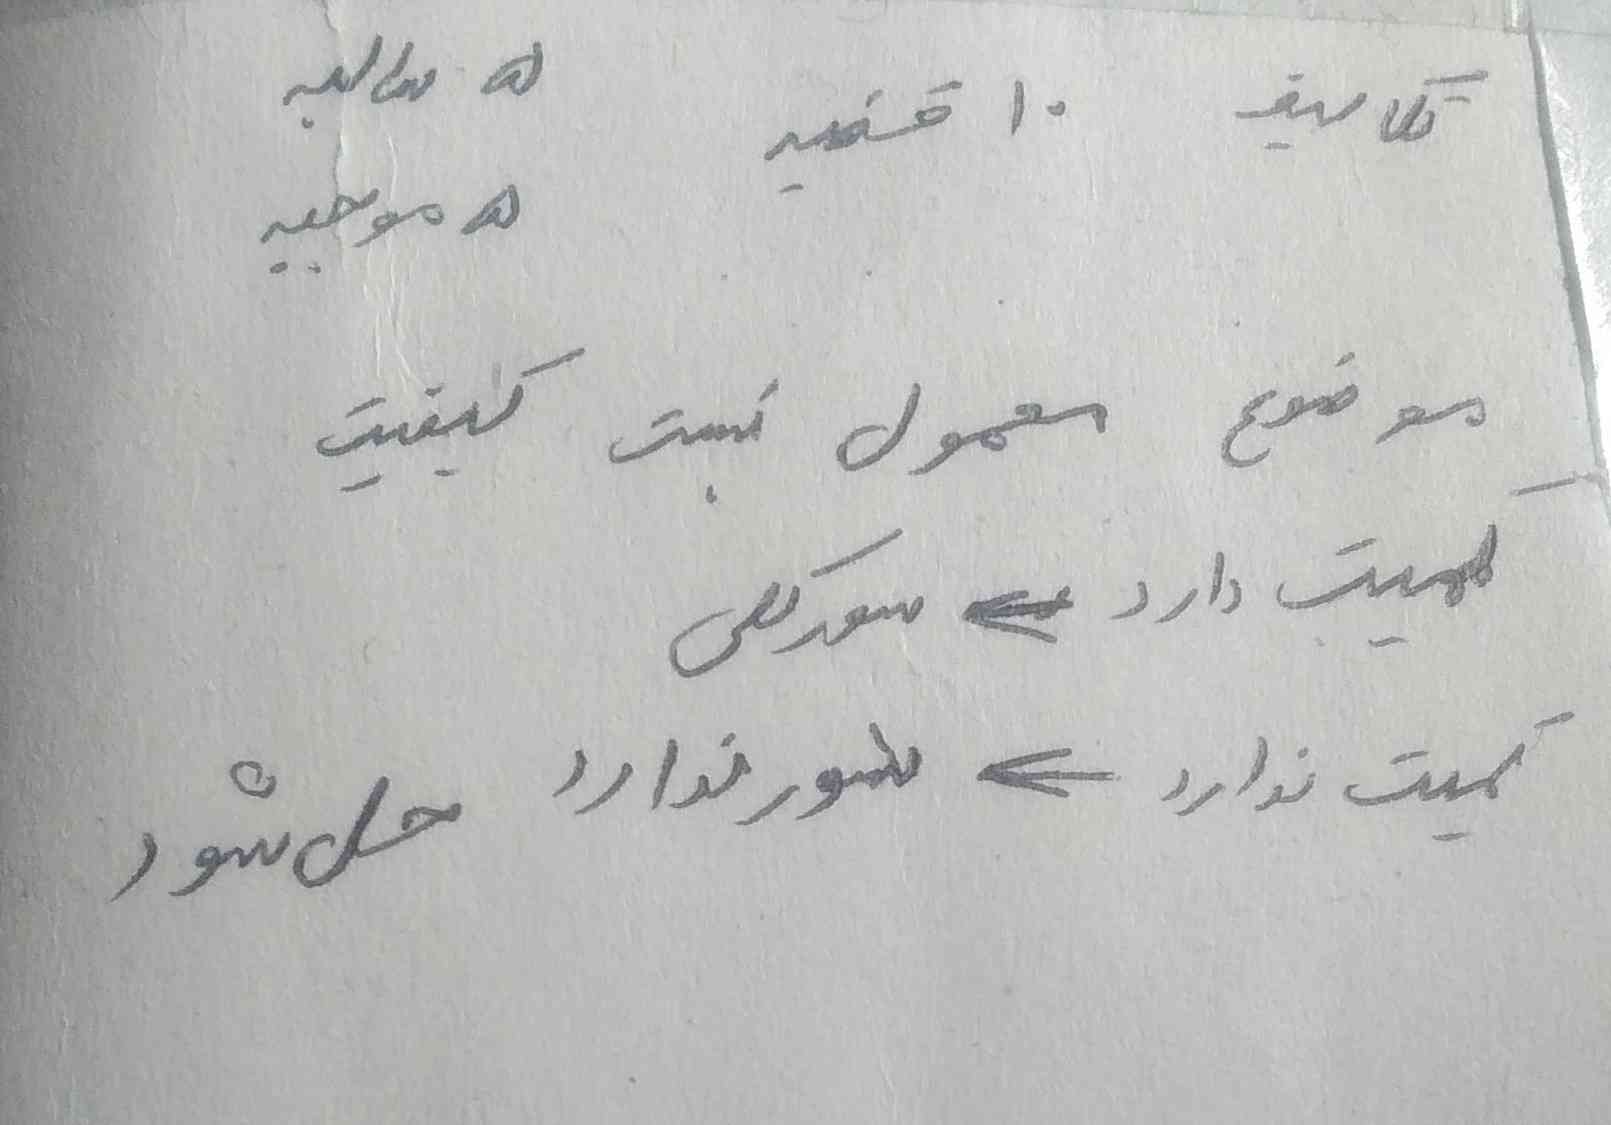 تکالیف ۱۰ قضیه ۵ سالبه
۵ موجبه
موضوع معمول نسبت کیفیت
کمیت دارد ← سور کلی
کمیت ندارد ← سور ندارد حل شود